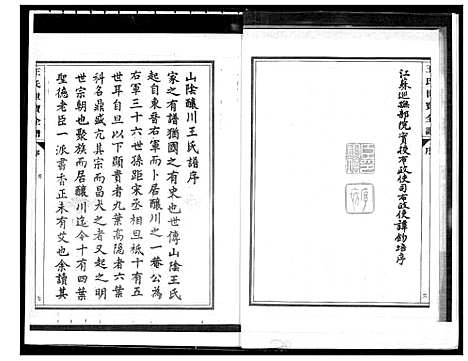 江蘇巡撫部院實授布政使司布政使譚鈞培序
山陰釀川王氏譜序
家之有譜猶國之有史也世傳山陰王氏
起自東晉右軍而卜居釀川之一菴公為
右軍三十六世孫距宋丞相旦祗十有五
世耳自旦以下顯貴者九葉高隱者六葉
科名鼎盛亢其宗而昌大之者又起之明
世宗朝也聚族而居釀川迄今十有四葉
聖德老臣一派書香正未有艾也余讀其